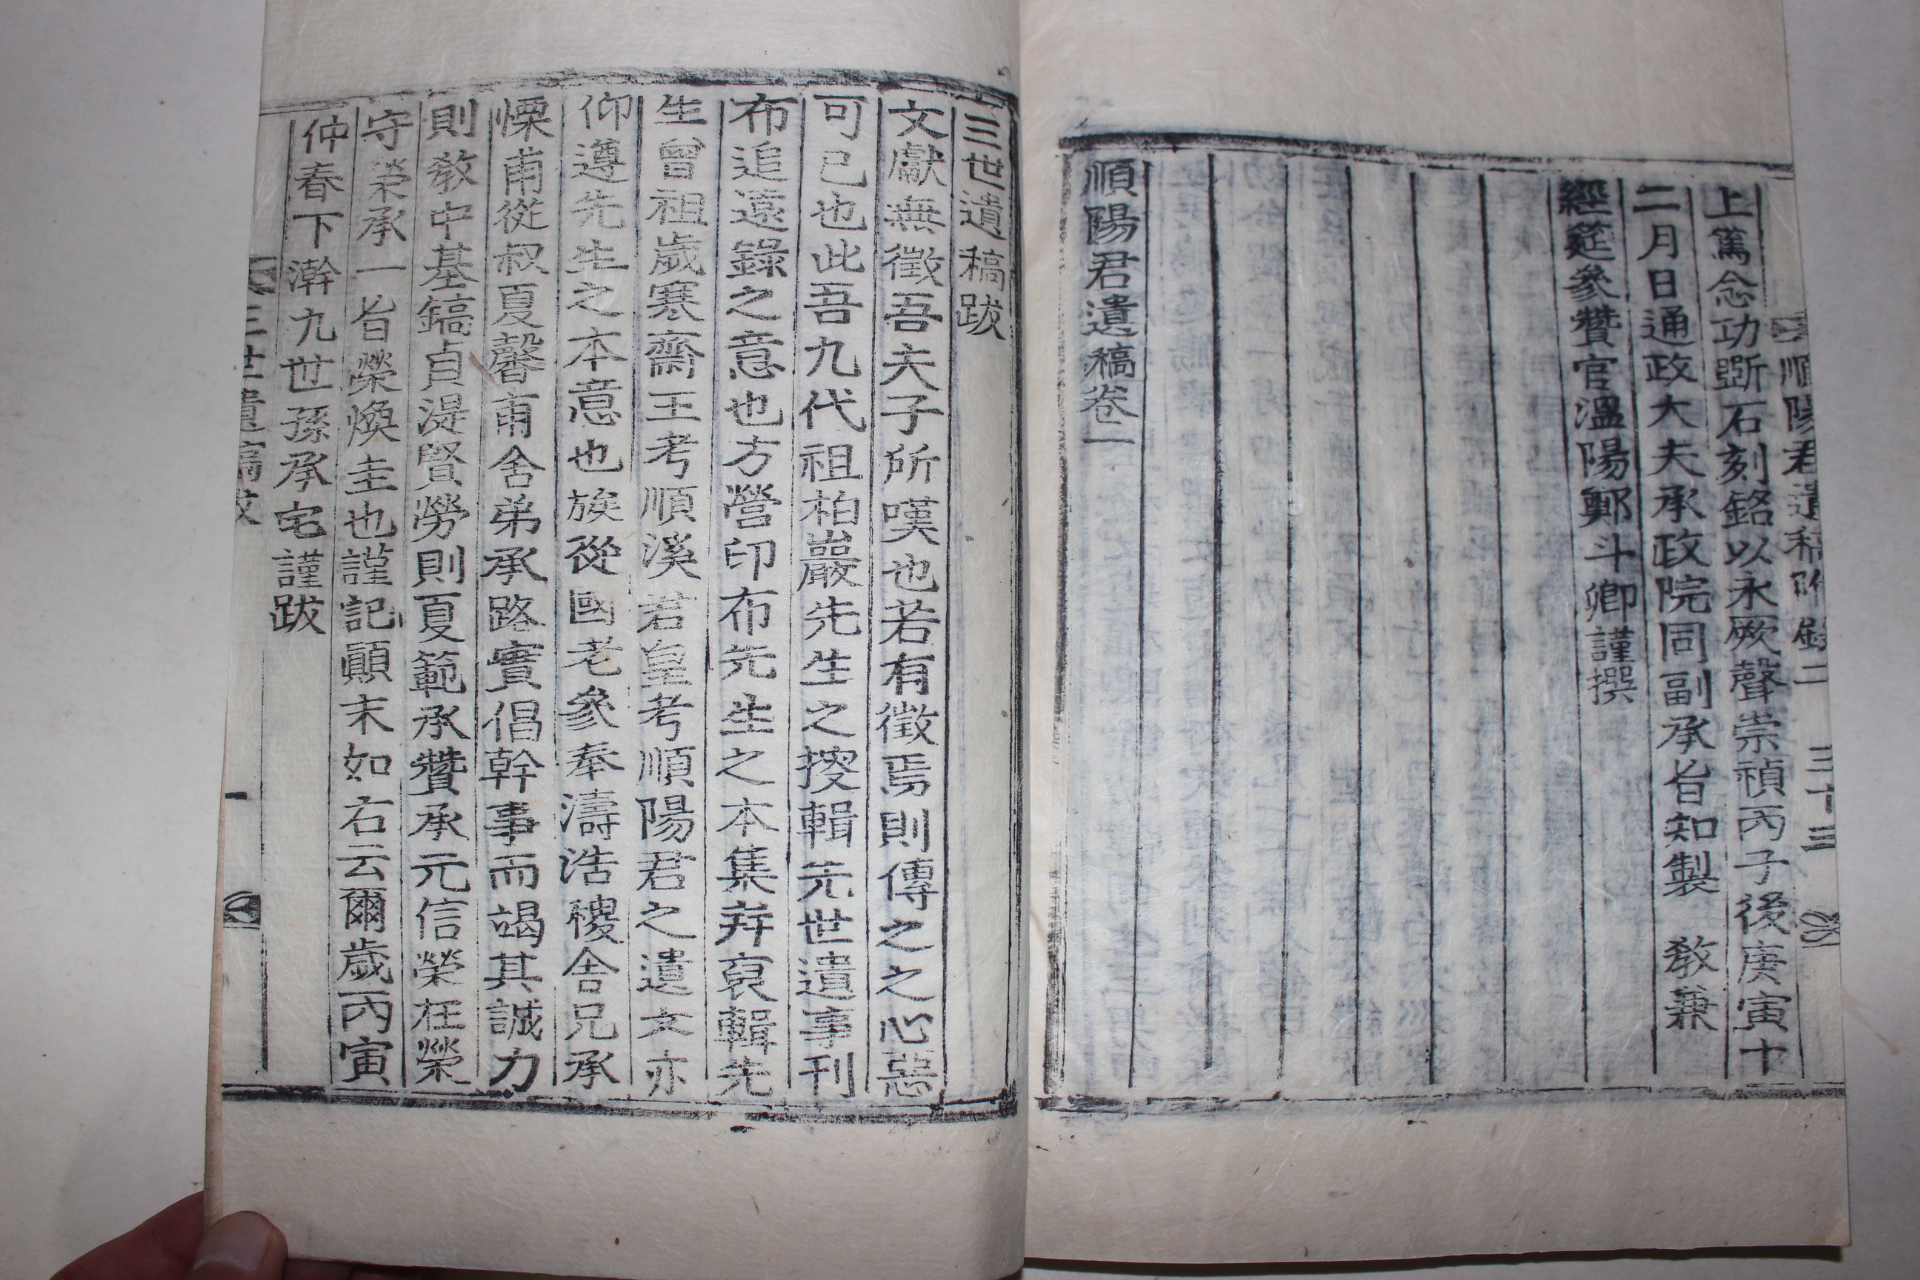 順陽君遺稿附錄二 三十三
上篤念功斲石刻銘以永厥聲崇禎丙子後庚寅十
二月日通政大夫承政院同副承旨知製 敎兼
經筵參贊官溫陽鄭斗卿謹撰
順陽君遺稿卷一
三世遺稿跋
文獻無徵吾夫子所嘆也若有徵焉則傳之之心惡
可已也此吾九代祖柏巖先生之搜輯先世遺事刊
布追遠錄之意也方營印布先生之本集幷裒輯先
生曾祖歲寒齋王考順溪君皇考順陽君之遺文亦
仰遵先生之本意也族從國老參奉濤浩稷舍兄承
慄甫從叔夏馨甫舍弟承路實倡幹事而竭其誠力
則敎中基鎬貞湜賢勞則夏範承贊承元信榮在榮
守榮承一旨榮煥圭也謹記顚末如右云爾歲丙寅
仲春下澣九世孫承宅謹跋
三世遺稿跋 一